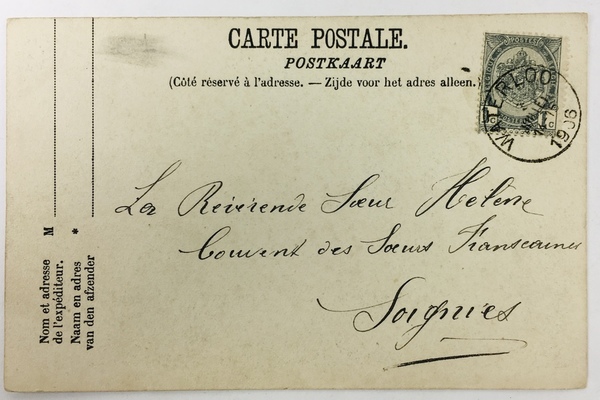 CARTE POSTALE.
POSTKAART
(Côté réservé à l'adresse. — Zijde voor het adres alleen.)
WATERLOO
1906
La Révérende Sœur Hélène
Couvent des Sœurs Franscaines
Soignies
M
*
Nom et adresse
de l'expéditeur.
Naam en adres
van den afzender